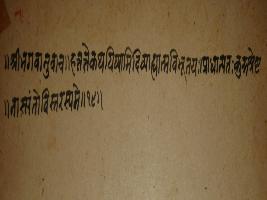 ॥श्रीभगवानुवाच॥हंततेकथयिष्यामिदिव्याह्यात्मविभूतयः॥प्राधान्यतःकुरुश्रेष्ठ
॥नास्त्यंतोविस्तरस्यमे॥१९॥